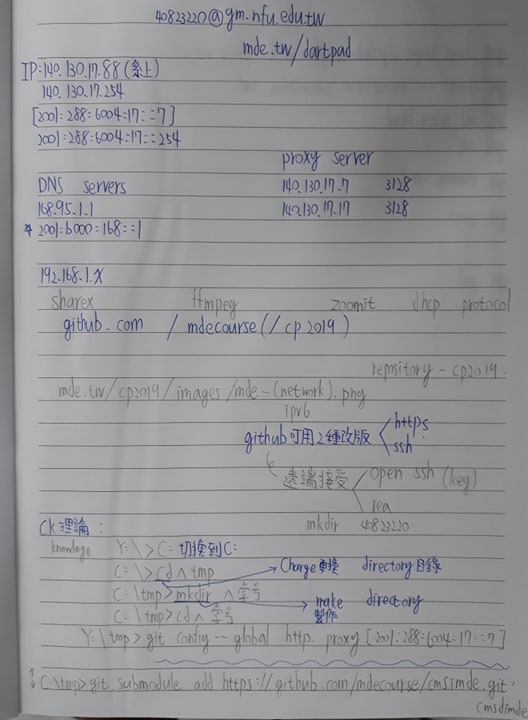 40823220@gm.nfu.edu.tw
mde.tw/dartpad
IP:140.130.17.88 (系上)
140.130.17.254
[2001:288:6004:17::7]
2001:288:6004:17::254
proxy server
DNS servers 140.130.17.7 3128
168.95.1.1 140.130.17.17 3128
* 2001:b000:168::1
192.168.1.X
sharex ffmpeg zoomit dhcp protocol
github.com / mdecourse (/cp2019)
repsitory - cp2019.
mde.tw/cp2019/images/mde-(network).png
ipv6
github可用2種改版 < https
ssh
遠端接受 < open ssh (key)
mkdir 40823220
Ck理論:
knowlage Y:\>C: 切換到C:
C:\>cd ∧ tmp → Change 車換 directory 目錄
C:\tmp>mkdir ∧ 字号
C:\tmp>cd ∧ 字号 → make 製作 directory
Y:\tmp>git config --global http.proxy [2001:288:6004:17::7]
C:\tmp>git submodule add https://github.com/mdecourse/cmsimde.git
cmsdimde